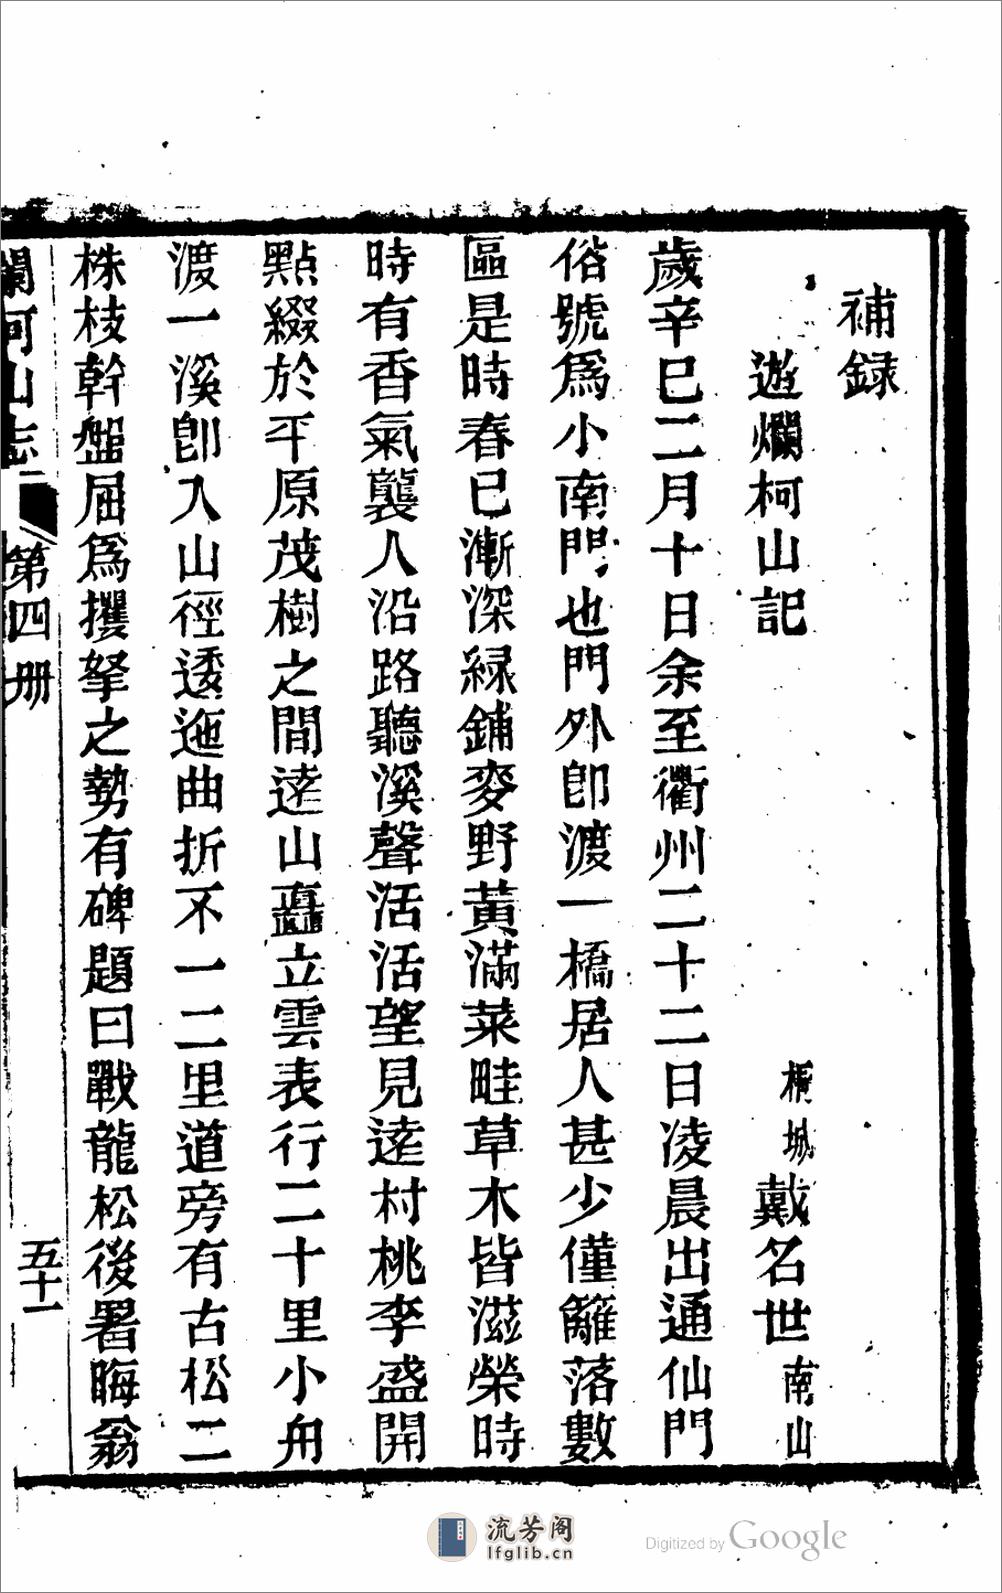 補録
遊爛柯山記
桐城戴名世南山
歲辛巳二月十日余至衢州二十二日凌晨出通仙門
俗號爲小南門也門外卽渡一橋居人甚少僅籬落數
區是時春已漸深綠鋪麥野黃滿菜畦草木皆滋榮時
時有香氣襲人沿路聽溪聲活活望見逺村桃李盛開
點綴於平原茂樹之間逺山矗立雲表行二十里小舟
渡一溪卽入山徑逶迤曲折不一二里道旁有古松二
株枝幹盤屈爲攫拏之勢有碑題曰戰龍松後署晦翁
爛柯山志
第四册
五十一
流芳阁
lfglib.cn
Digitized by Google